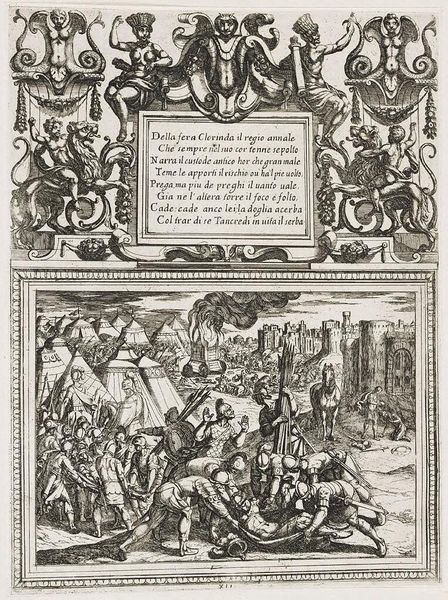 Della fera Clorinda il regio annale
Che sempre nel suo cor tenne sepolto
Narra il custode antico hor che gran male
Teme le apporti il rischio ou ha'l pie uolto.
Prega, ma piu de preghi il uanto uale.
Gia ne l'altera torre il foco è folto.
Cade: cade anco lei; la doglia acerba
Col trar di se Tancredi in uita il serba
XII